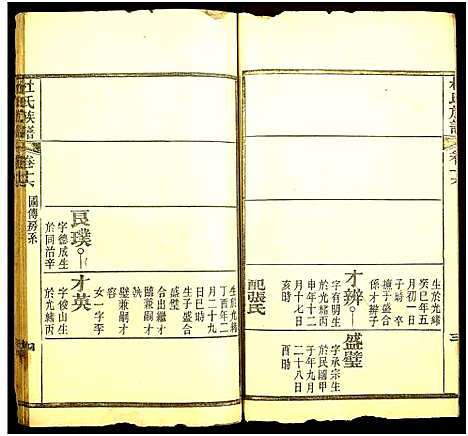 杜氏族譜
卷十六
三
生於光緒
癸巳年五
月初一日
子時卒
係才辦合
才辦
字有朋生
於光緒丙
申年十二
月十七日
亥時
配張氏
盛璧
字承宗生
於民國甲
子年九月
二十八日
酉時
杜氏族譜
卷十六
國傳房系
良璞
字德成生
於同治辛
才英
字俊山生
於光緒丙
生於光緒
丁酉年二
月二十九
日巳時
生子盛合
盛璧
合出繼才
璧兼嗣才
容
女一字李